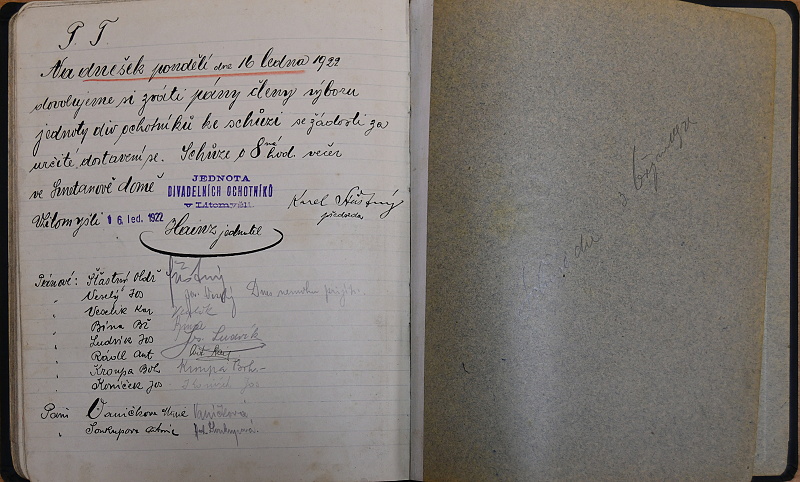 P. T.
Na dnešek pondělí dne 16 ledna 1922
dovolujeme si zváti pány členy výboru
jednoty div. ochotníků ke schůzi se žádostí za
určité dostavení se. Schůze o 8mé hod. večer
ve Smetanově domě
JEDNOTA
DIVADELNÍCH OCHOTNÍKŮ
v Litomyšli.
Karel Šťastný
předseda
V Litomyšli 16. led. 1922
Hainz jednatel
Pánové: Šťastný Oldř Šťastný
" Veselý Jos Jos. Veselý Dnes nemohu přijíti.
" Veselík Kar
" Bína Bř
" Ludvík Jos Jos. Ludvík
" Rádl Ant
" Kroupa Boh Kroupa Boh.
" Koníček Jos
Paní Vaníčkova Vaníčková
" Soukupova